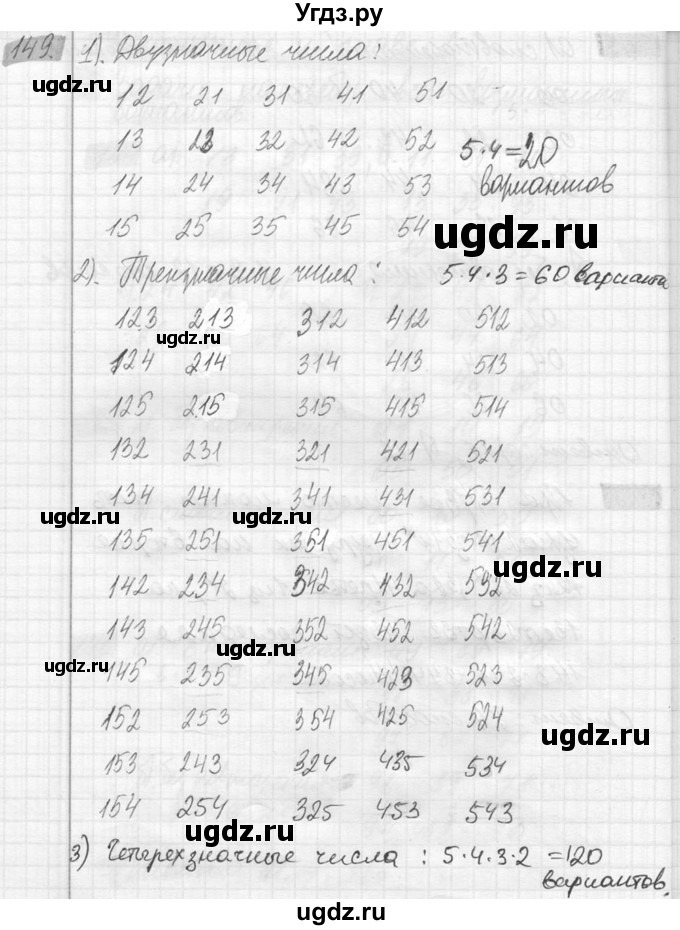 Угдз.ру
149. 1). Двузначные числа:
12 21 31 41 51
13 23 32 42 52 5·4=20
14 24 34 43 53 вариантов
15 25 35 45 54
ugdz.ru
2). Трехзначные числа: 5·4·3=60 варианта
123 213 312 412 512
ugdz.ru
124 214 314 413 513
125 215 315 415 514
132 231 321 421 521
134 241 341 431 531
ugdz.ru ugdz.ru
135 251 351 451 541
ugdz.ru
142 234 342 432 532
143 245 352 452 542
ugdz.ru ugdz.ru
145 235 345 423 523
152 253 354 425 524
ugdz.ru
153 243 324 435 534
154 254 325 453 543
ugdz.ru
3) Четырехзначные числа: 5·4·3·2=120
вариантов.
ugdz.ru